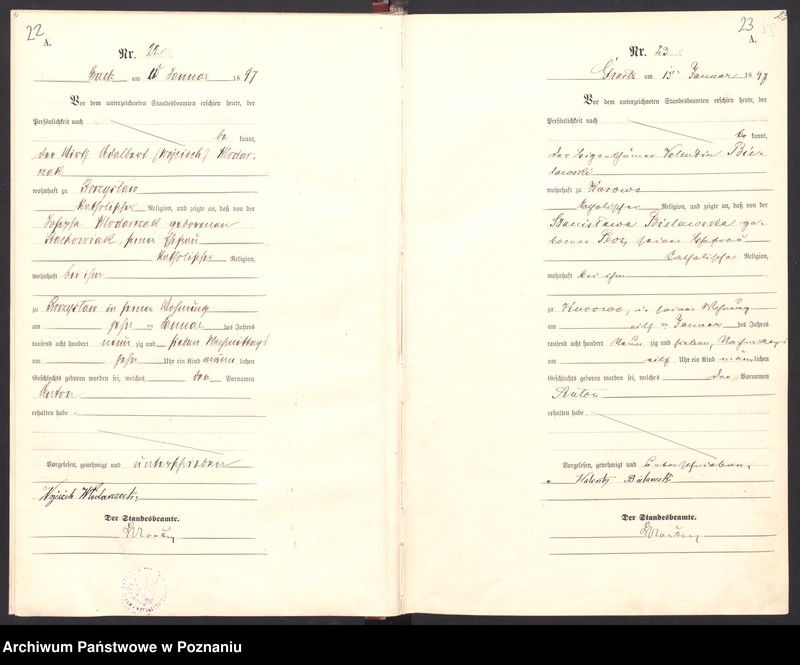 22
A.
Nr. 22
am 10 Januar 1897
Vor dem unterzeichneten Standesbeamten erschien heute, der
Persönlichkeit nach
be kannt,
der Wirth Adalbert (Wojciech) Wlodar-
czak
wohnhaft zu
katholischer Religion, und zeigte an, daß von der
Josefa Wlodarczak geborenen
Stachowiak, seiner Ehefrau
katholischer Religion,
wohnhaft bei ihm
zu in seiner Wohnung
am Januar des Jahres
tausend acht hundert neun zig und sieben Nachmittags
um Uhr ein Kind männ lichen
Geschlechts geboren worden sei, welches den Vornamen
Anton
erhalten habe.
Vorgelesen, genehmigt und unterschrieben
Wojciech Włodarczak
Der Standesbeamte.
23
A.
Nr. 23
Graetz am 13 Januar 1897
Vor dem unterzeichneten Standesbeamten erschien heute, der
Persönlichkeit nach
be kannt,
der Eigenthümer Valentin Bie-
lawski
wohnhaft zu Kurowo
katholischer Religion, und zeigte an, daß von der
Stanislawa Bielawska ge-
borenen seiner Ehefrau
katholischer Religion,
wohnhaft bei ihm
zu Kurowo, in seiner Wohnung
am elf Januar des Jahres
tausend acht hundert neun zig und sieben, Nachmittags
um elf Uhr ein Kind männ lichen
Geschlechts geboren worden sei, welches den Vornamen
Anton
erhalten habe
Vorgelesen, genehmigt und unterschrieben
Walenty Bielawski
Der Standesbeamte.
Archiwum Państwowe w Poznaniu